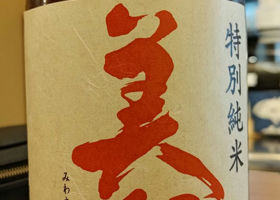 特別純米
美
みわ